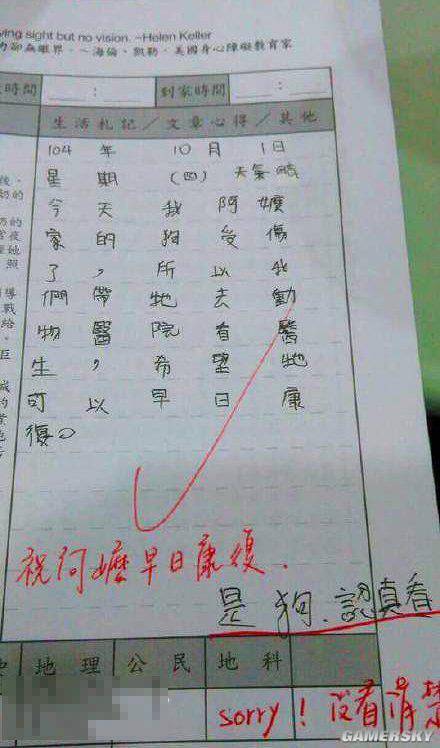 ving sight but no vision. ~Helen Keller
力卻無眼界。~海倫、凱勒，美國身心障礙教育家
時間
：
到家時間
：
生活札記／文章心得／其他
104年10月1日
星期(四) 天氣晴
今天我阿嬤
家的狗受傷
了，所以我
們帶牠去動
物醫院看醫
生，希望牠
可以早日康
復。
祝阿嬤早日康復．
是狗．認真看
地理
公民
地科
sorry！沒看清楚
GAMERSKY